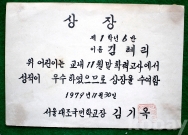 상 장
제 1 학년 6 반
이름 김 혜 리
위 어린이는 교내 11월말 학력고사에서
성적이 우수하였으므로 상장을 수여함
1979년 11월 30일
서울대조국민학교장 김 기 옥